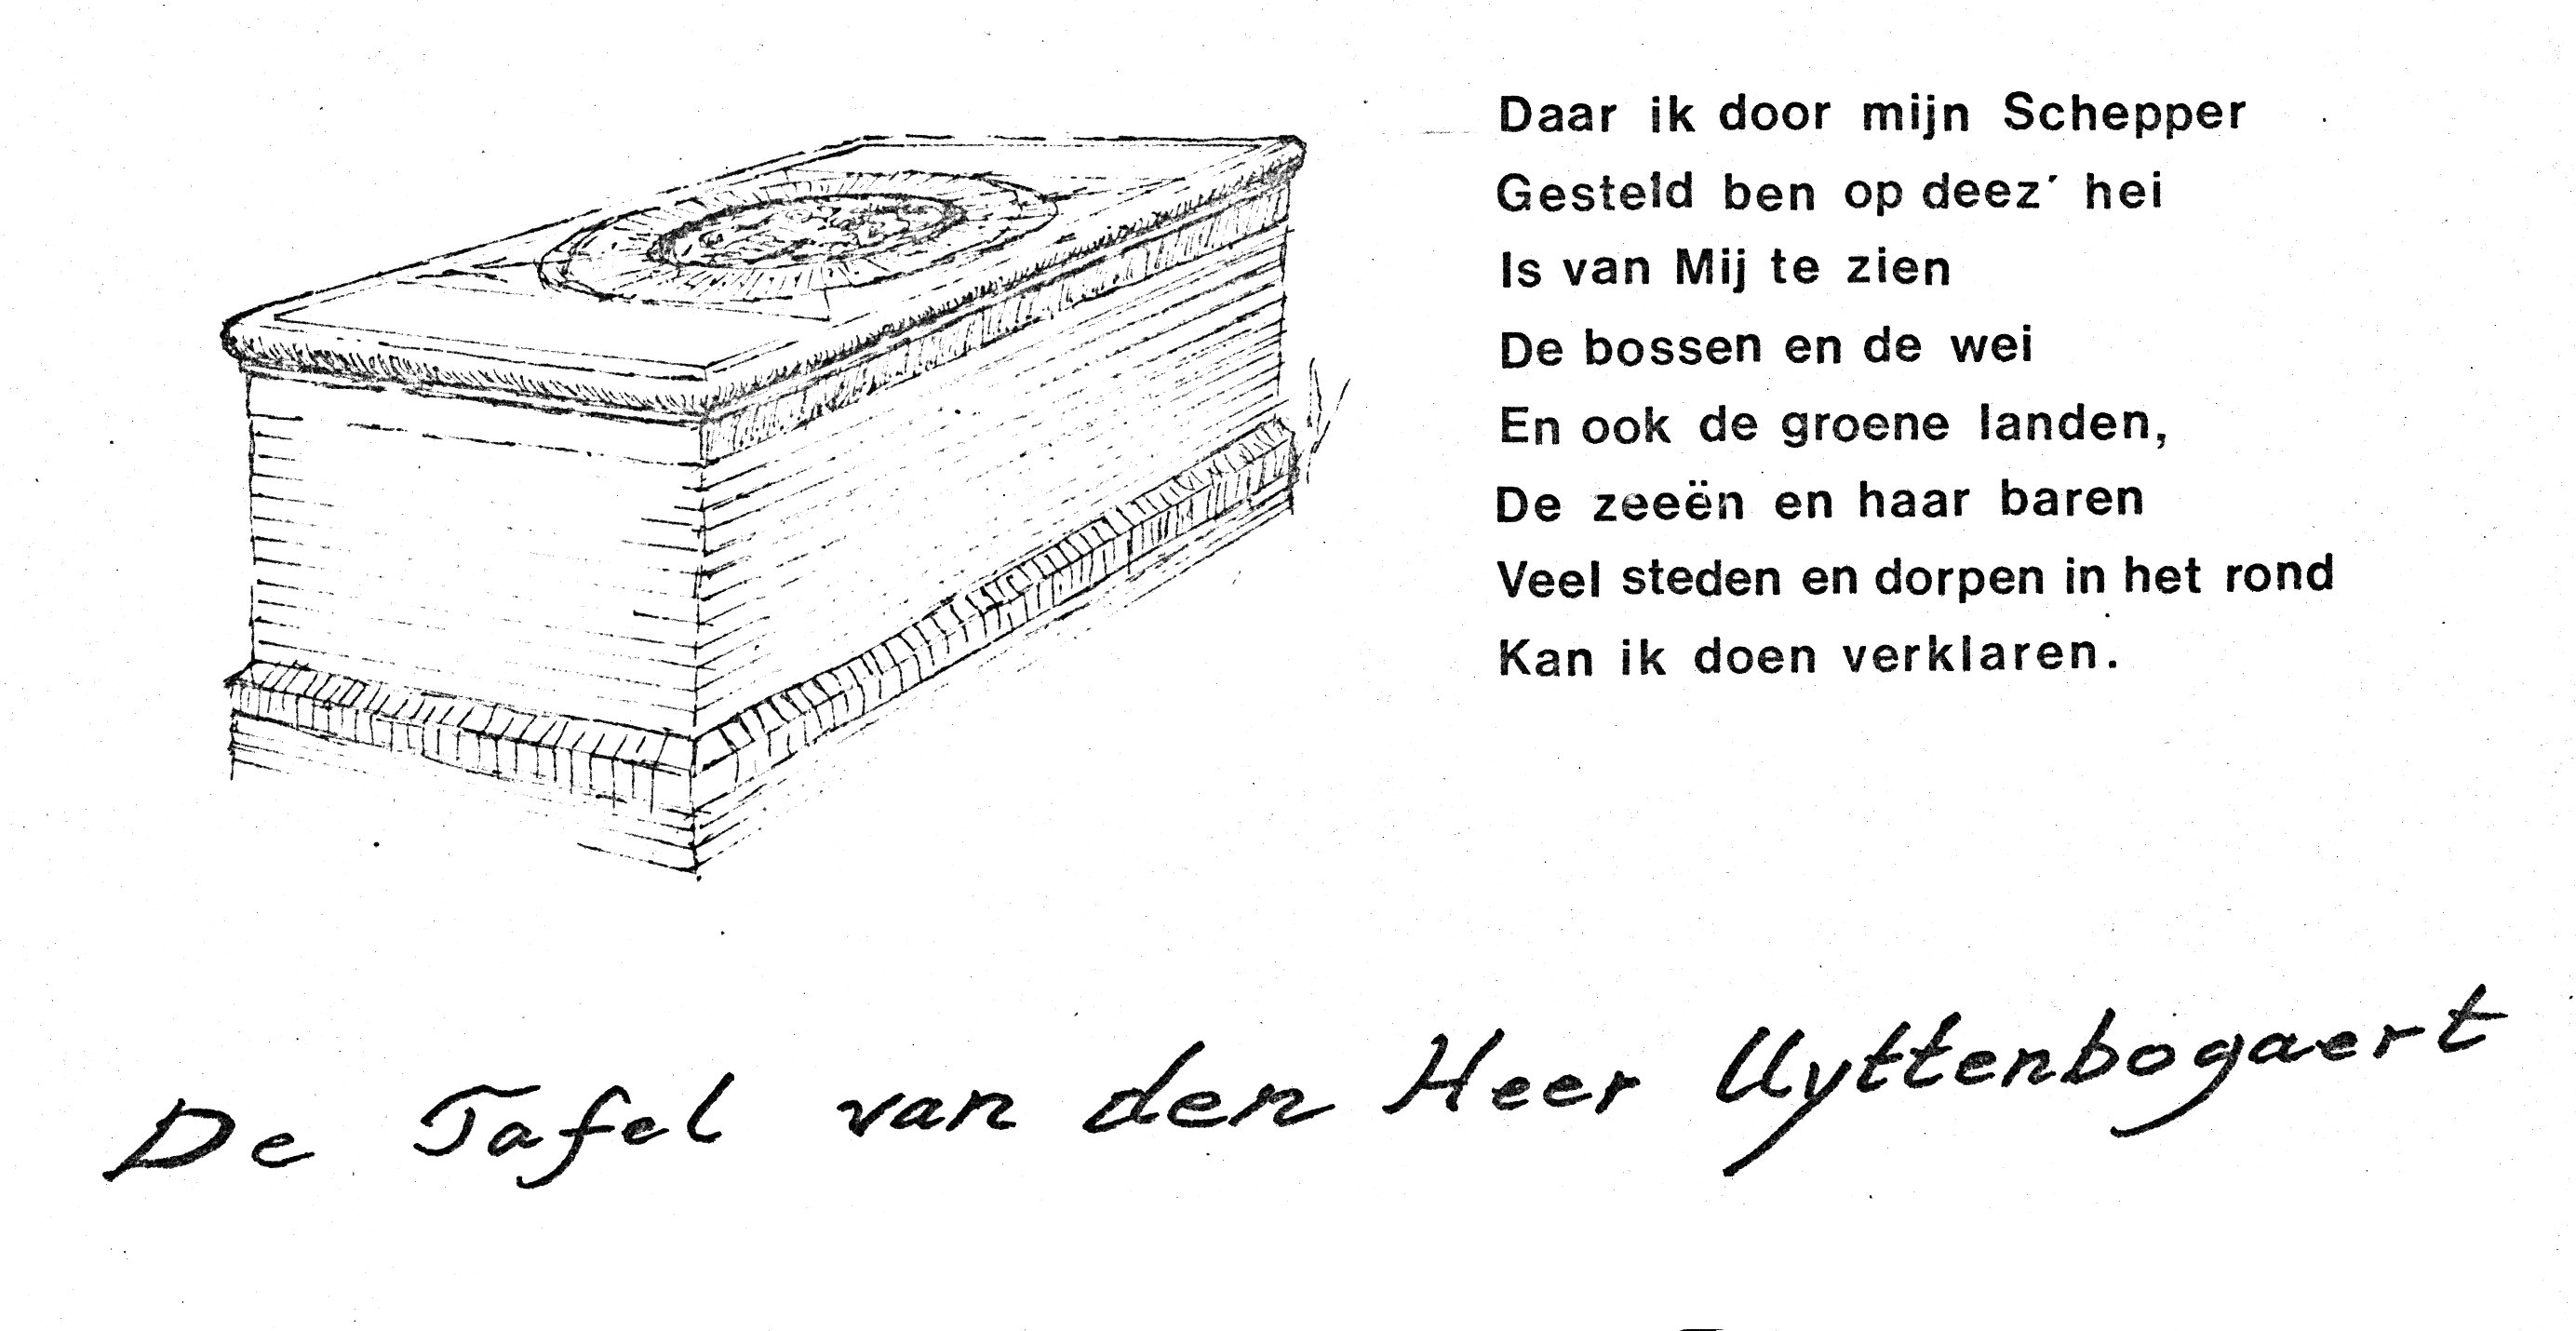 Daar ik door mijn Schepper
Gesteld ben op deez´ hei
Is van Mij te zien
De bossen en de wei
En ook de groene landen,
De zeeën en haar baren
Veel steden en dorpen in het rond
Kan ik doen verklaren.
De Tafel van den Heer Uyttenbogaert